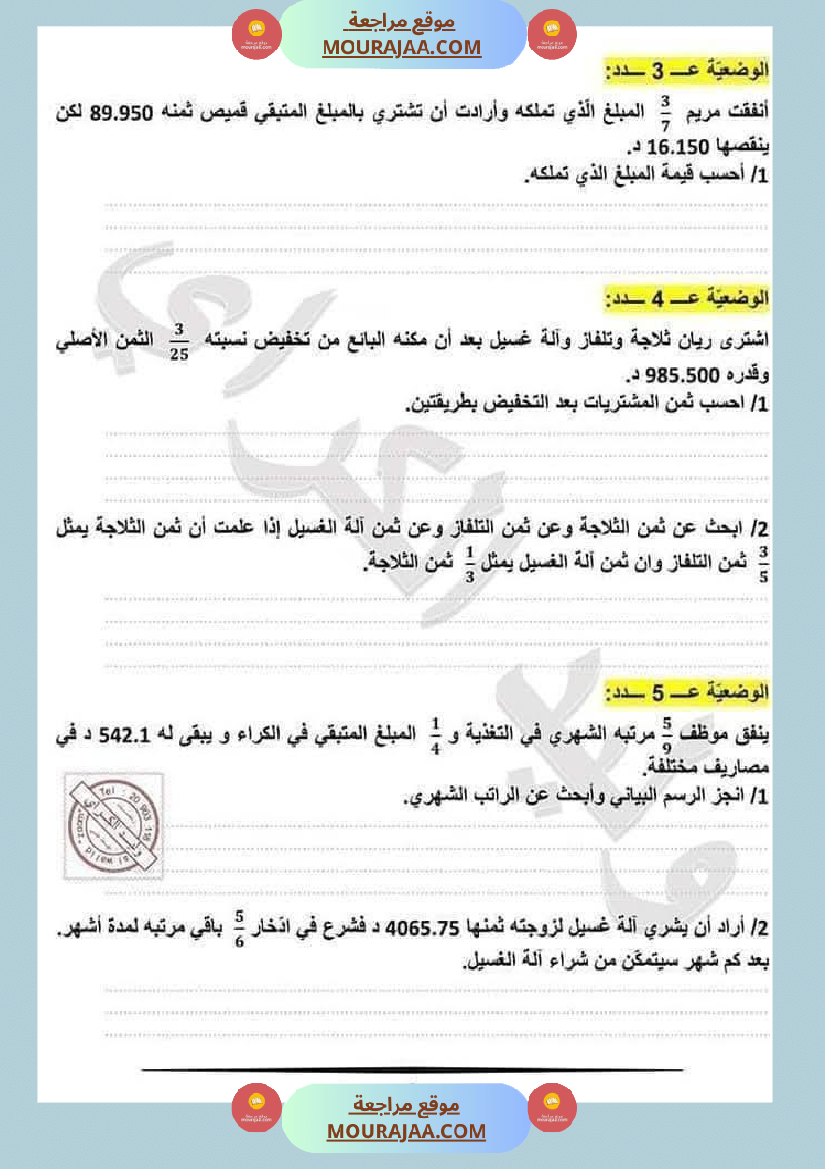 موقع مراجعة
MOURAJAA.COM
الوضعيّة عــ 3 ــدد:
أنفقت مريم 3/7 المبلغ الّذي تملكه وأرادت أن تشتري بالمبلغ المتبقي قميص ثمنه 89.950 لكن
ينقصها 16.150 د.
1/ أحسب قيمة المبلغ الذي تملكه.
الوضعيّة عــ 4 ــدد:
اشترى ريان ثلاجة وتلفاز وآلة غسيل بعد أن مكنه البائع من تخفيض نسبته 3/25 الثمن الأصلي
وقدره 985.500 د.
1/ احسب ثمن المشتريات بعد التخفيض بطريقتين.
2/ ابحث عن ثمن الثلاجة وعن ثمن التلفاز وعن ثمن آلة الغسيل إذا علمت أن ثمن الثلاجة يمثل
3/5 ثمن التلفاز وان ثمن آلة الغسيل يمثل 1/3 ثمن الثلاجة.
الوضعيّة عــ 5 ــدد:
ينفق موظف 5/9 مرتبه الشهري في التغذية و 1/4 المبلغ المتبقي في الكراء و يبقى له 542.1 د في
مصاريف مختلفة.
1/ انجز الرسم البياني وأبحث عن الراتب الشهري.
2/ أراد أن يشري آلة غسيل لزوجته ثمنها 4065.75 د فشرع في ادّخار 5/6 باقي مرتبه لمدة أشهر.
بعد كم شهر سيتمكّن من شراء آلة الغسيل.
موقع مراجعة
MOURAJAA.COM